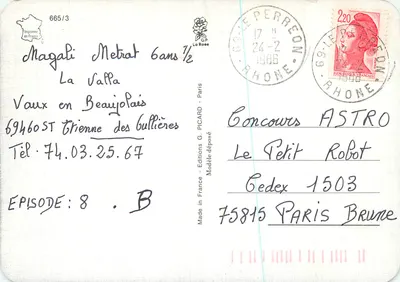 665/3
Magali Metrat 6ans 1/2
La Valla
Vaux en Beaujolais
69460 ST Etienne des Oullières
Tél. 74.03.25.67
EPISODE : 8 . B
Made in France - Editions G. PICARD - Paris
Modèle déposé
69 LE PERREON
24-2
RHONE
2,20
69 LE PERREON
RHONE
Concours ASTRO
Le Petit Robot
Cedex 1503
75815 PARIS BRUNE